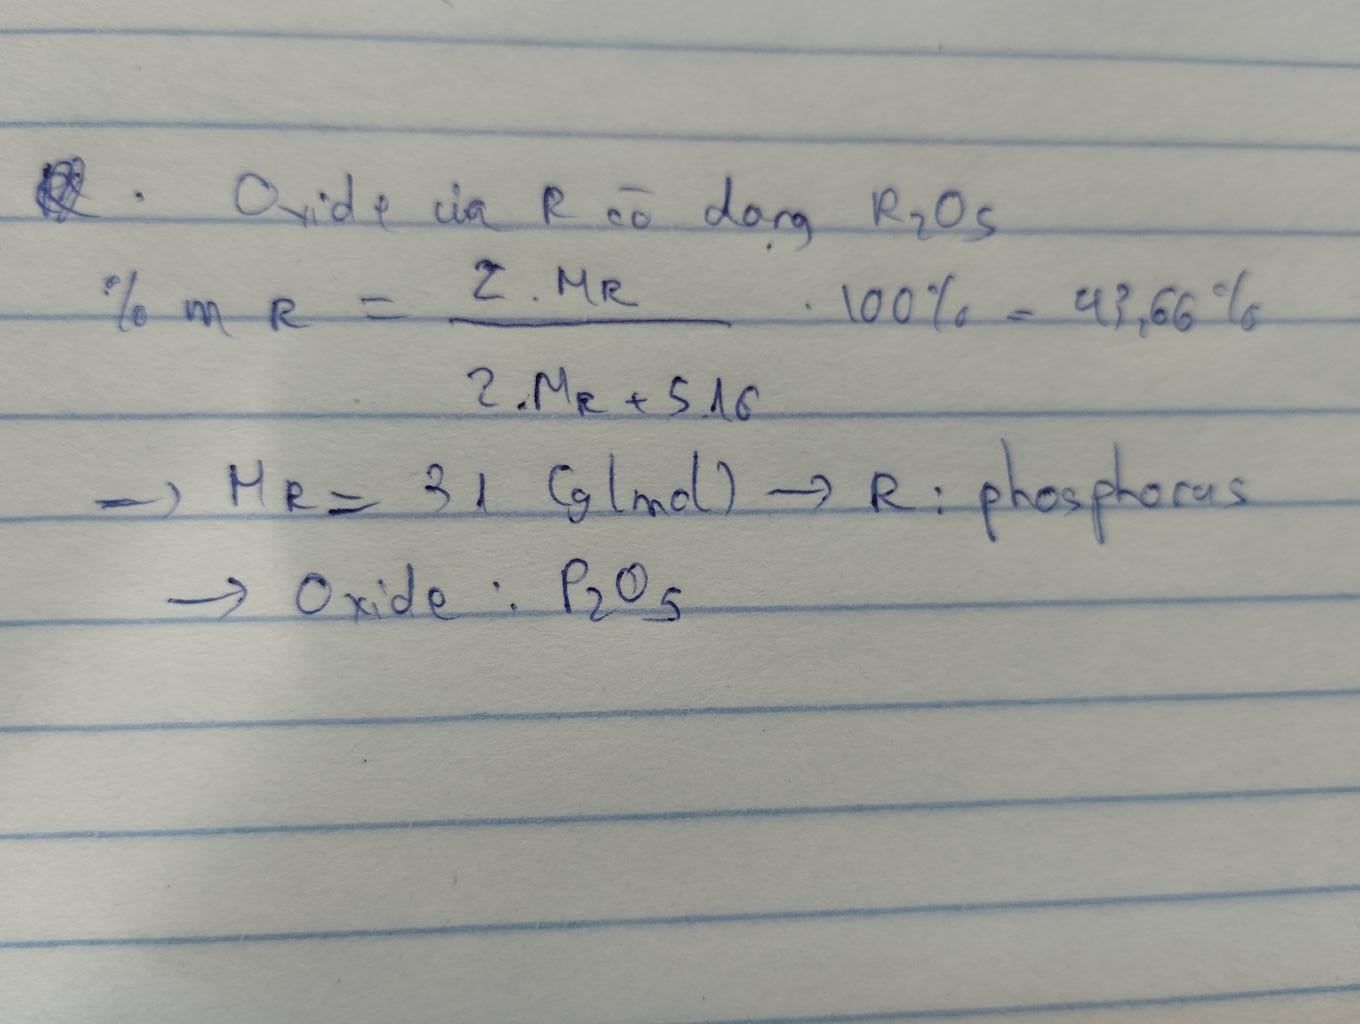 . Oxide của R có dạng R₂O₅
% m R = 2 . MR / 2.MR + 5.16 . 100% = 43,66%
→ MR = 31 (g/mol) → R : phosphorus
→ Oxide : P₂O₅